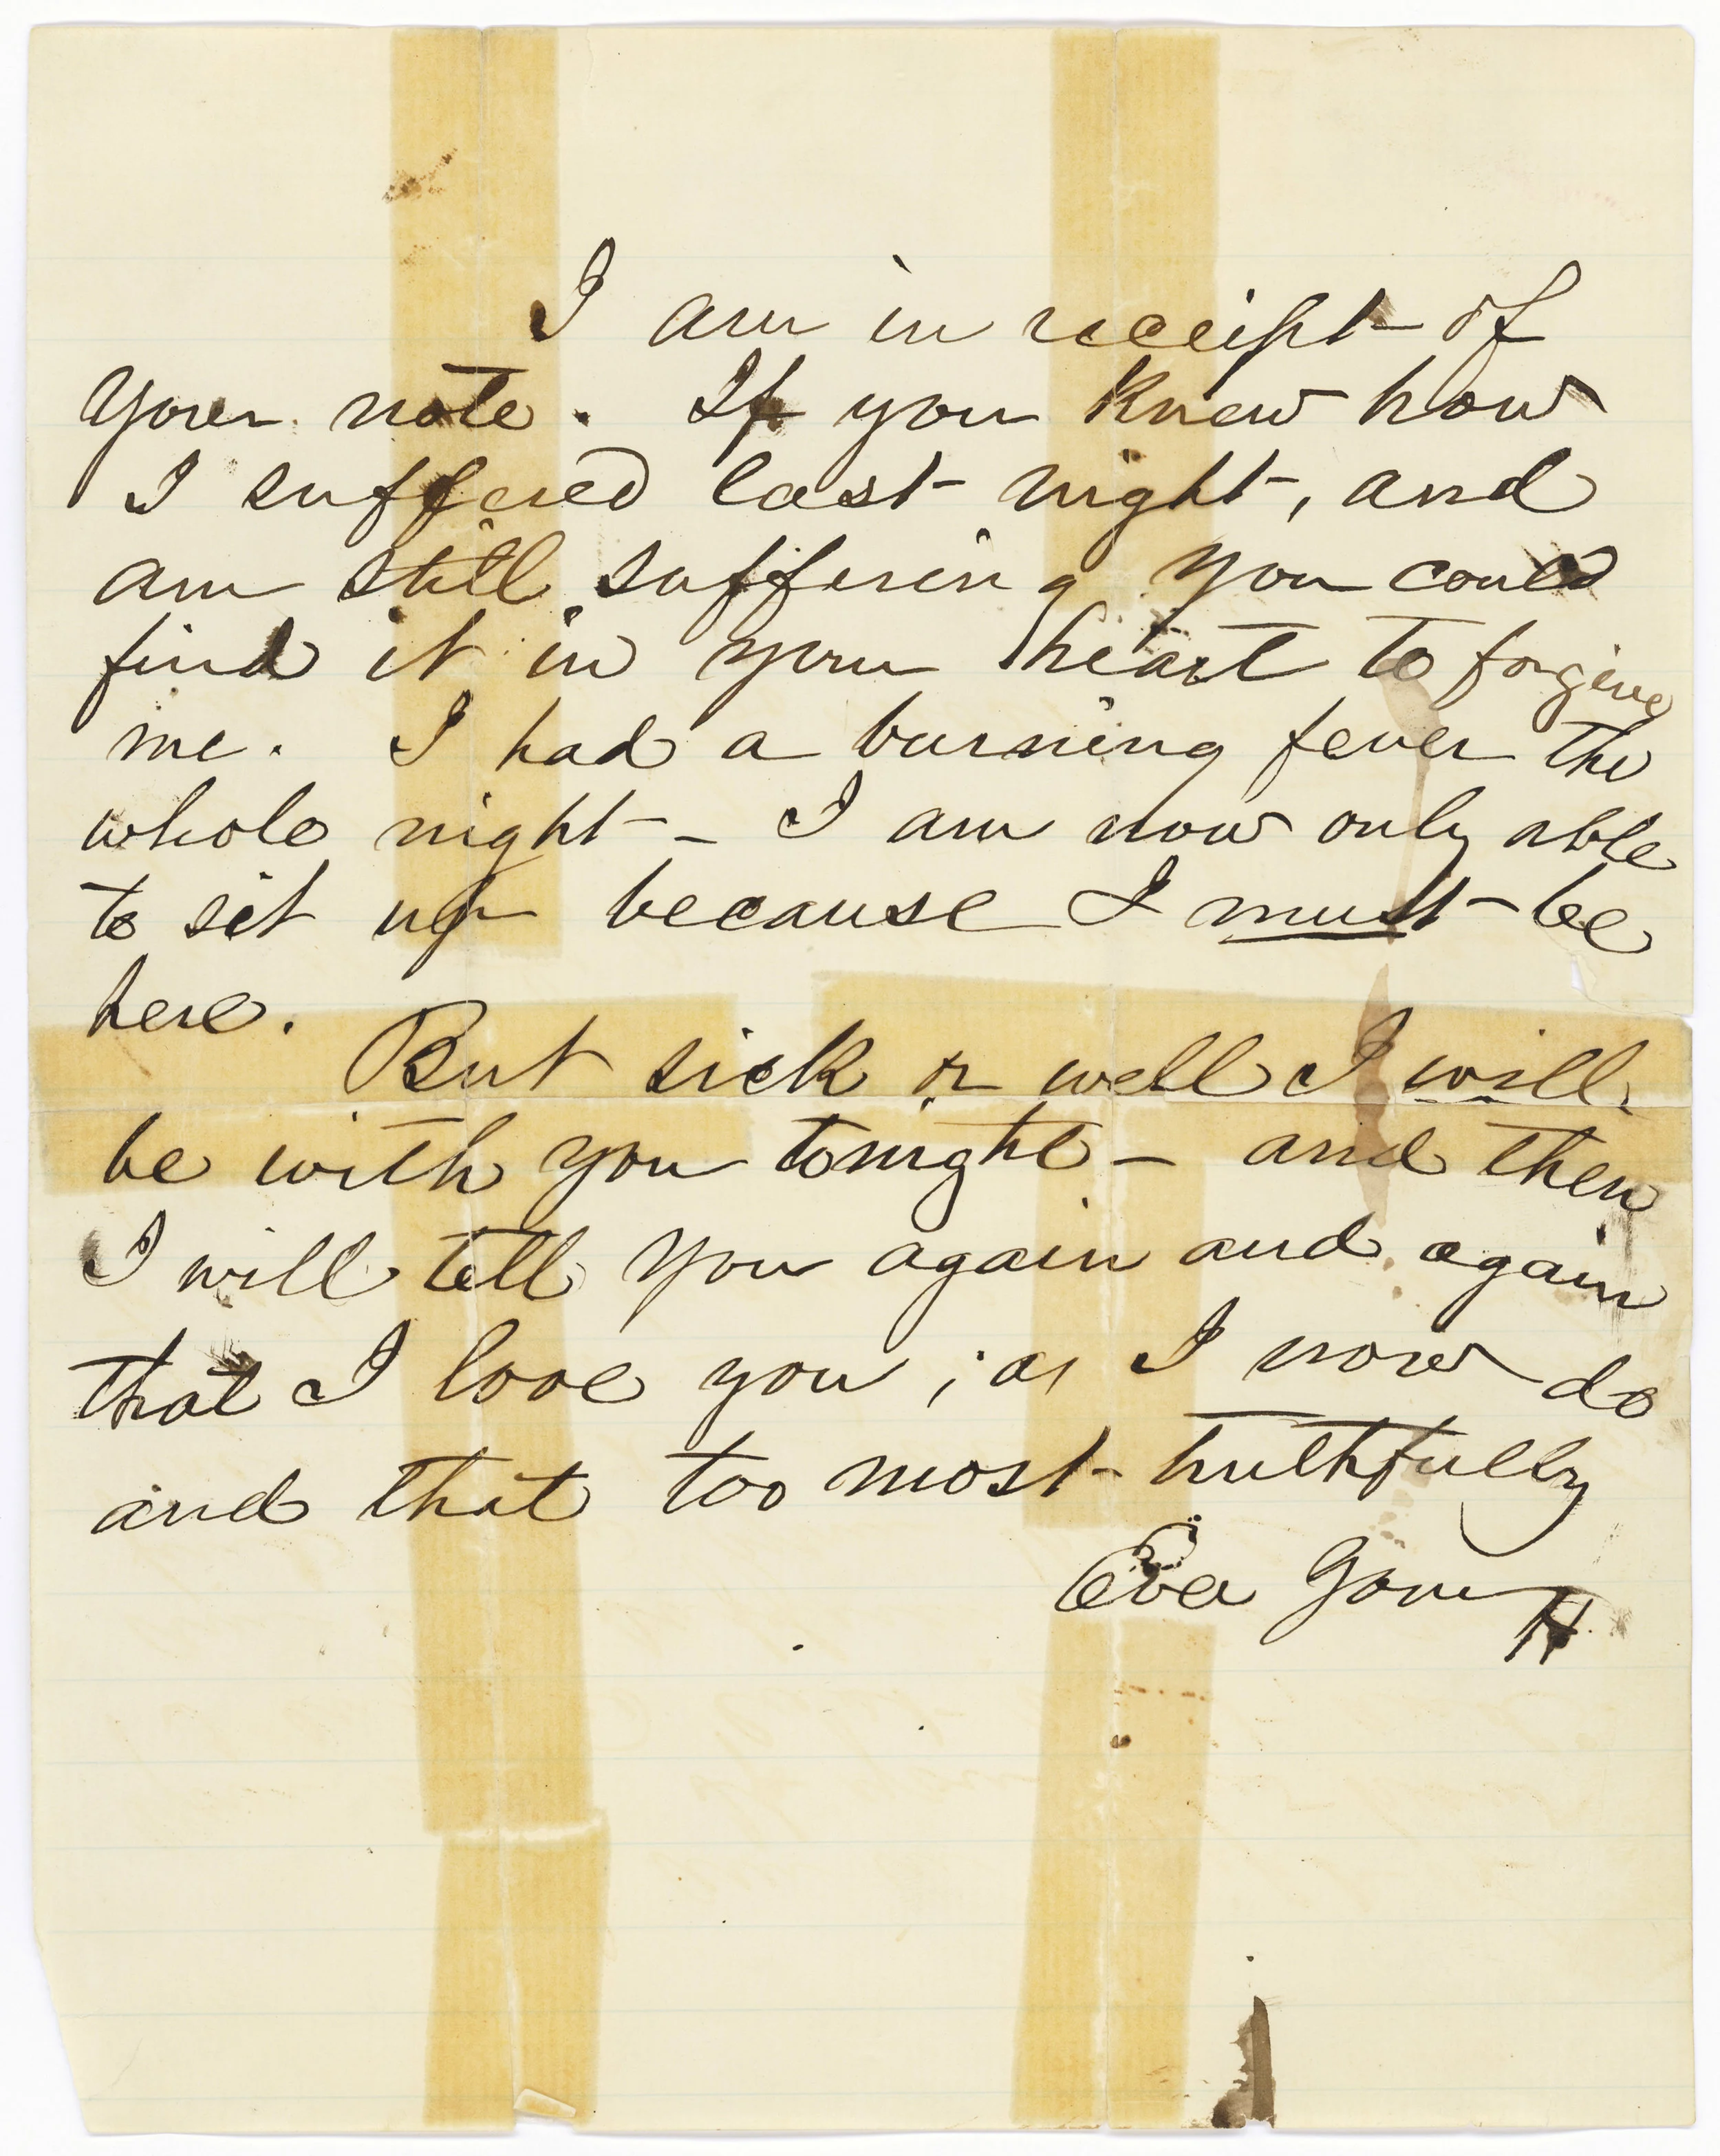 I am in receipt of
your note. If you knew how
I suffered last night, and
am still suffering you could
find it in your heart to forgive
me. I had a burning fever the
whole night - I am now only able
to sit up because I must be
here.
But sick or well I will
be with you tonight - and then
I will tell you again and again
that I love you, as I now do
and that too most truthfully
Ever Your
H